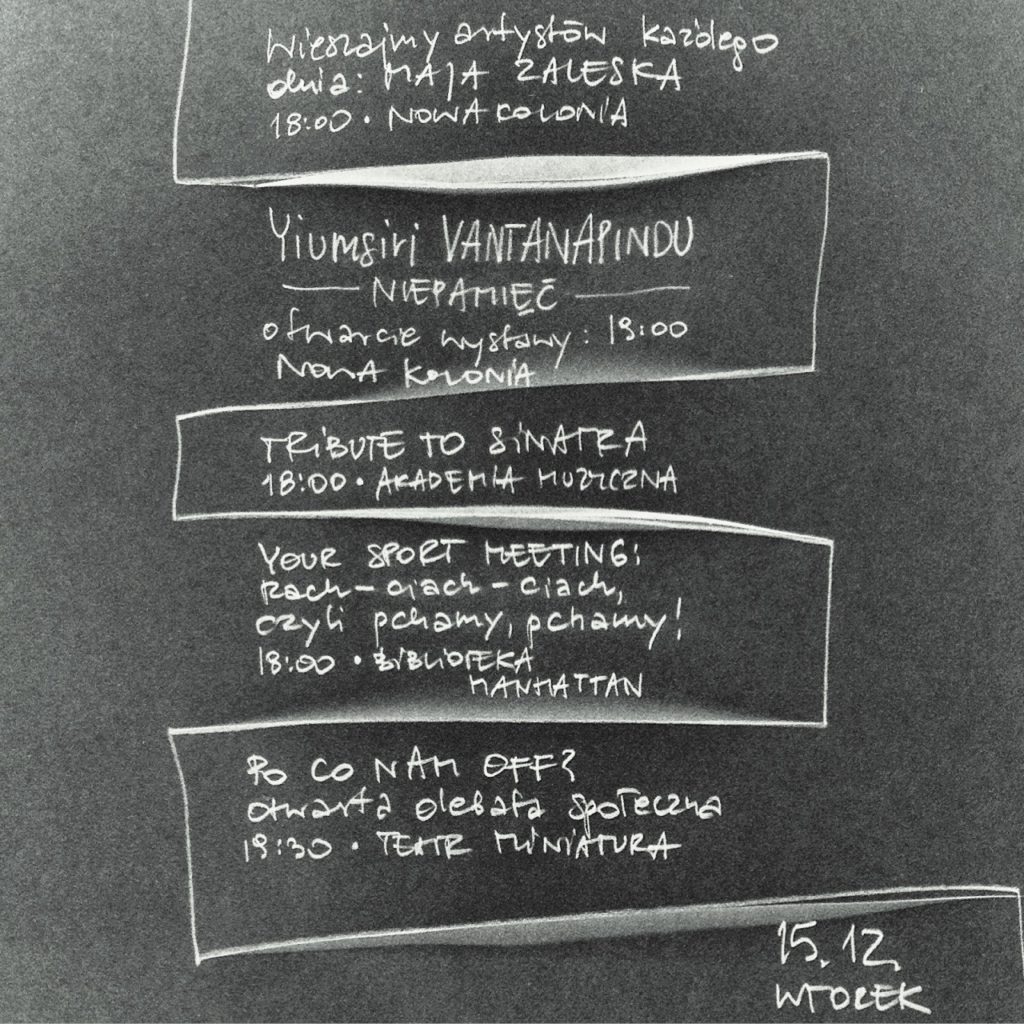 Wieszajmy artystów każdego
dnia: MAJA ZALESKA
18:00 • NOWA KOLONIA
Yiumsiri VANTANAPINDU
— NIEPAMIĘĆ —
otwarcie wystawy: 19:00
NOWA KOLONIA
TRIBUTE TO SINATRA
18:00 • AKADEMIA MUZYCZNA
YOUR SPORT MEETING:
Rach-ciach-ciach,
czyli pchamy, pchamy!
18:00 • BIBLIOTEKA
MANHATTAN
PO CO NAM OFF?
otwarta debata społeczna
19:30 • TEATR MINIATURA
15.12.
WTOREK